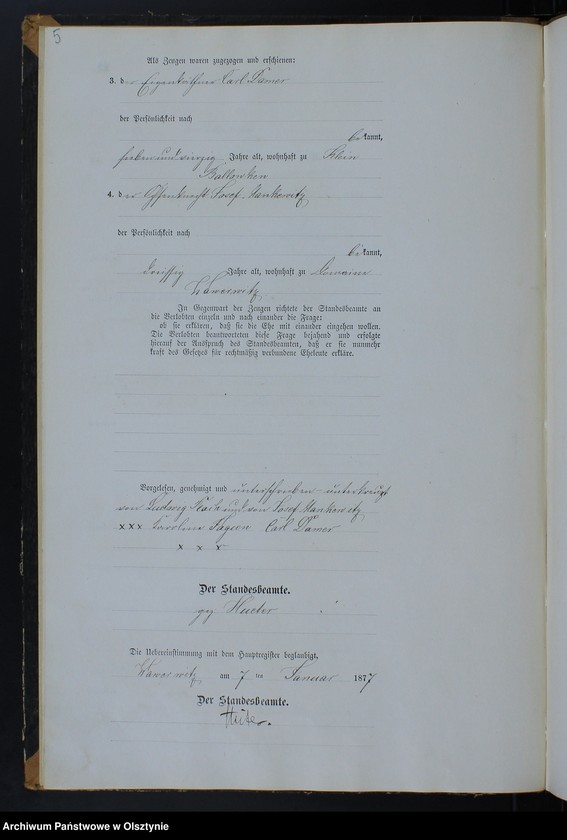 5
Als Zeugen waren zugezogen und erschienen:
3. der Eigenkäthner Carl Damer
der Persönlichkeit nach
bekannt,
sieben und vierzig Jahre alt, wohnhaft zu Klein
Ballowken
4. der Josef Mankowitz
der Persönlichkeit nach
bekannt,
dreissig Jahre alt, wohnhaft zu Domaine
In Gegenwart der Zeugen richtete der Standesbeamte an
die Verlobten einzeln und nach einander die Frage:
ob sie erklären, daß sie die Ehe mit einander eingehen wollen.
Die Verlobten beantworteten diese Frage bejahend und erfolgte
hierauf der Ausspruch des Standesbeamten, daß er sie nunmehr
kraft des Gesetzes für rechtmäßig verbundene Eheleute erkläre.
Vorgelesen, genehmigt und unterschrieben unterkreuzt
von Ludwig und von Josef Mankowitz
x x x Karoline Carl Damer
x x x
Der Standesbeamte.
gez
Die Uebereinstimmung mit dem Hauptregister beglaubigt,
am 7 ten Januar 1877
Der Standesbeamte.
Archiwum Państwowe w Olsztynie